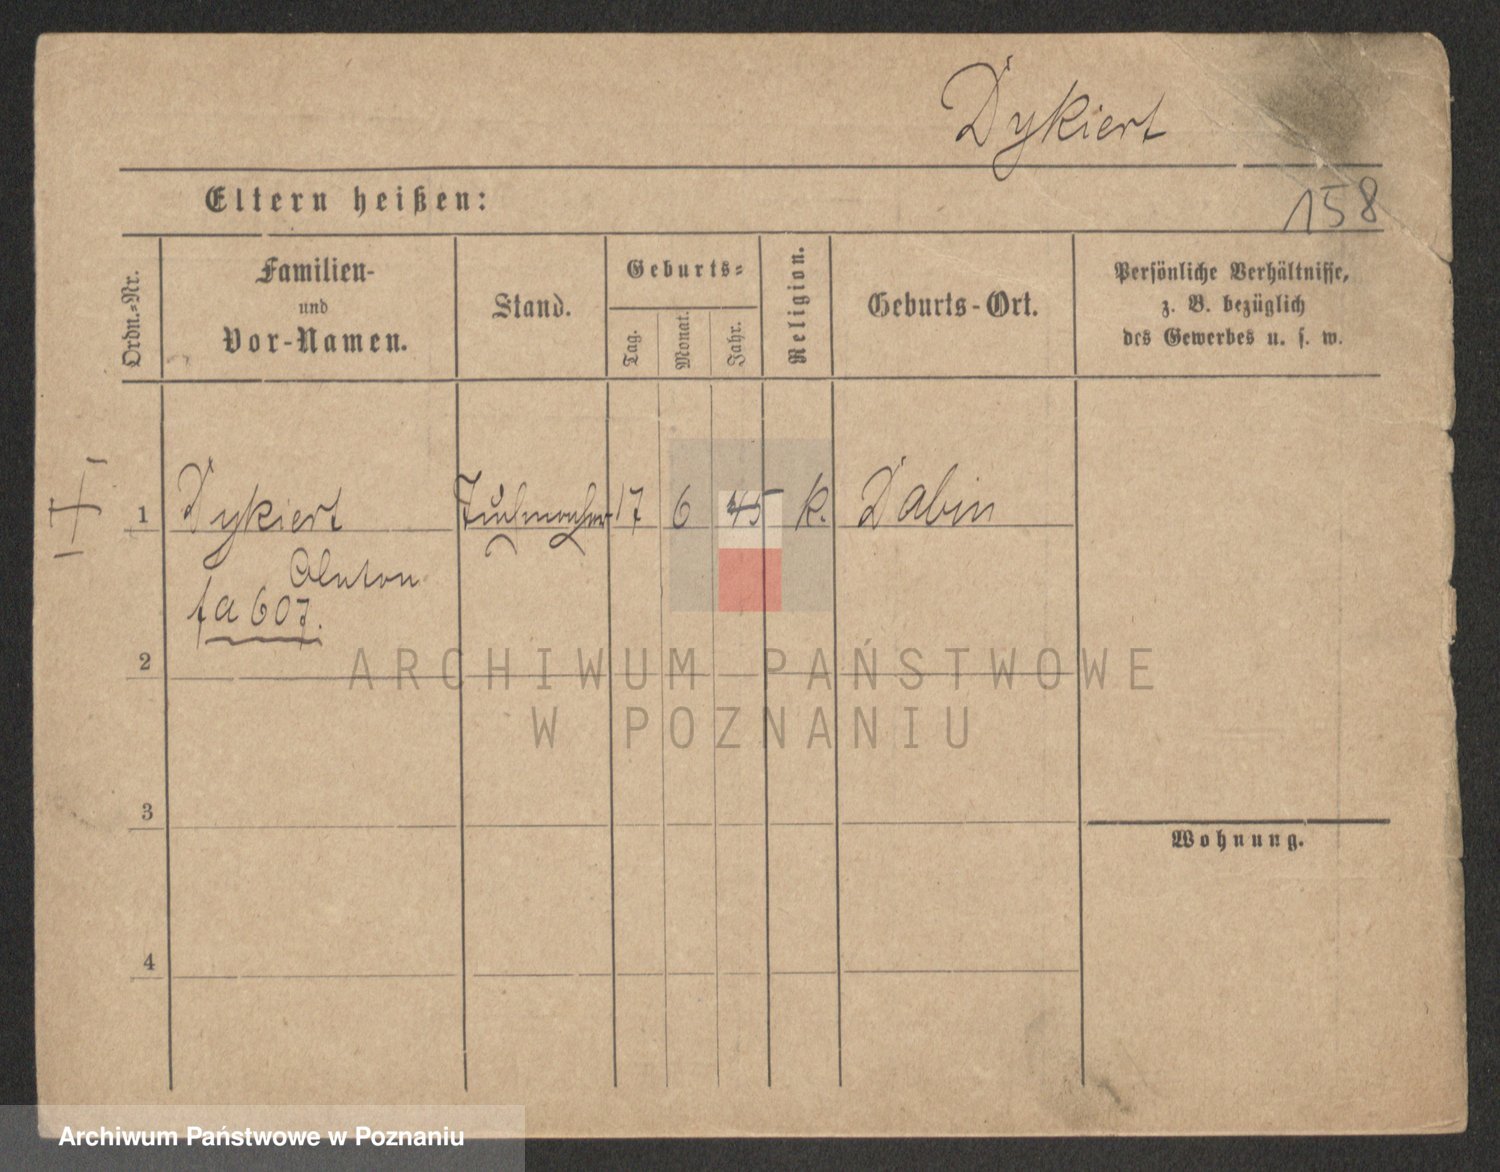 Dykiert
Eltern heißen:
158
Ordn.-Nr.
Familien-
und
Vor-Namen.
Stand.
Geburts-
Tag.
Monat.
Jahr.
Religion.
Geburts-Ort.
Persönliche Verhältnisse,
z. B. bezüglich
des Gewerbes u. s. w.
1 Dykiert Tuchmacher 17 6 45 k. Dabin
Anton
fa 607.
2
ARCHIWUM PAŃSTWOWE
W POZNANIU
3
Wohnung.
4
Archiwum Państwowe w Poznaniu